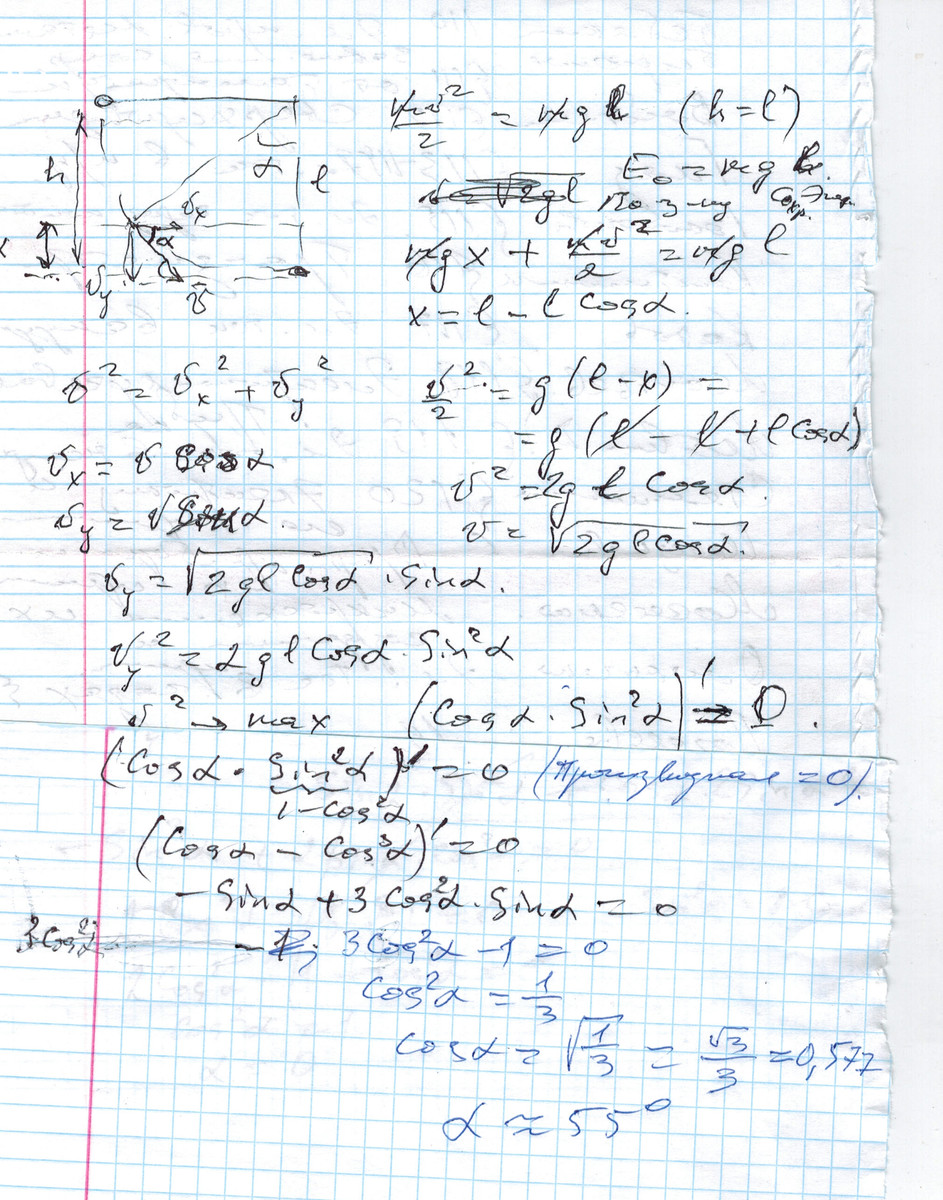 h
x
α
l
v_x
α
v_y
v̄
mv²/2 = mgh (h = l)
√2gl E₀ = mgh.
По з-ну Сохр. Энер.
mgx + mv²/2 = mgl
x = l - l cosα.
v² = v_x² + v_y²
v²/2 = g(l - x) =
= g(l - l + l cosα)
v_x = v cosα
v² = 2gl cosα.
v_y = v sinα.
v = √2gl cosα.
v_y = √2gl cosα · sinα.
v_y² = 2gl cosα · sin²α
v² → max (cosα · sin²α)' = 0.
(cosα · sin²α)' = 0 (Производная = 0).
1 - cos²α
(cosα - cos³α)' = 0
- sinα + 3cos²α · sinα = 0
3cos²α
3cos²α - 1 = 0
cos²α = 1/3
cosα = √1/3 = √3/3 = 0,577
α ≈ 55°